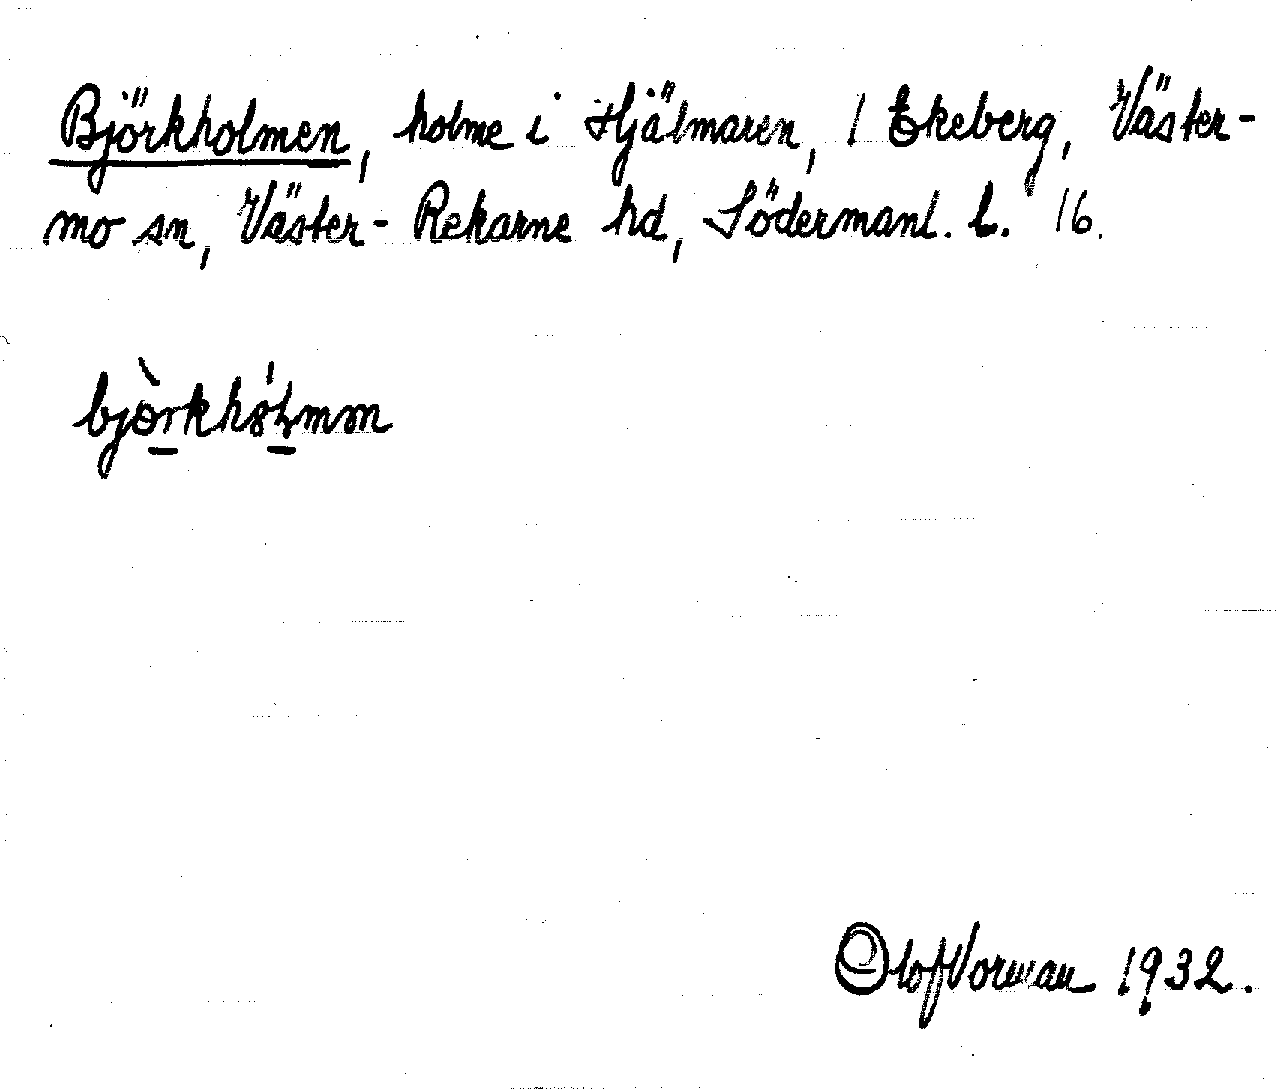 Björkholmen, holme i Hjälmaren, / Ekeberg, Väster-
mo sn, Väster-Rekarne hd, Södermanl. l. 16.
björkhólmm
Olof Norman 1932.